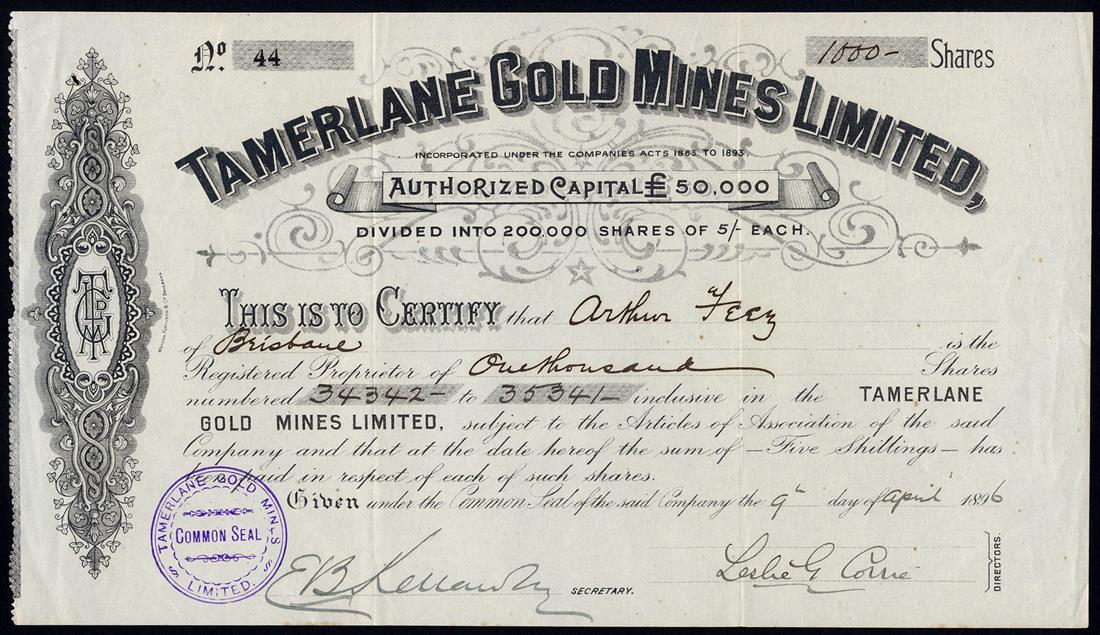 No. 44
1000- Shares
TAMERLANE GOLD MINES LIMITED,
INCORPORATED UNDER THE COMPANIES ACTS 1863, TO 1893.
AUTHORIZED CAPITAL £50,000
DIVIDED INTO 200.000 SHARES OF 5/- EACH.
THIS IS TO CERTIFY that Arthur Feez
of Brisbane is the
Registered Proprietor of One thousand Shares
numbered 34342- to 35341- inclusive in the TAMERLANE
GOLD MINES LIMITED, subject to the Articles of Association of the said
Company and that at the date hereof the sum of — Five Shillings — has
been paid in respect of each of such shares.
Given under the Common Seal of the said Company the 9" day of April 1896
TAMERLANE GOLD MINES
COMMON SEAL
LIMITED.
Leslie G Corrie
DIRECTORS.
SECRETARY.